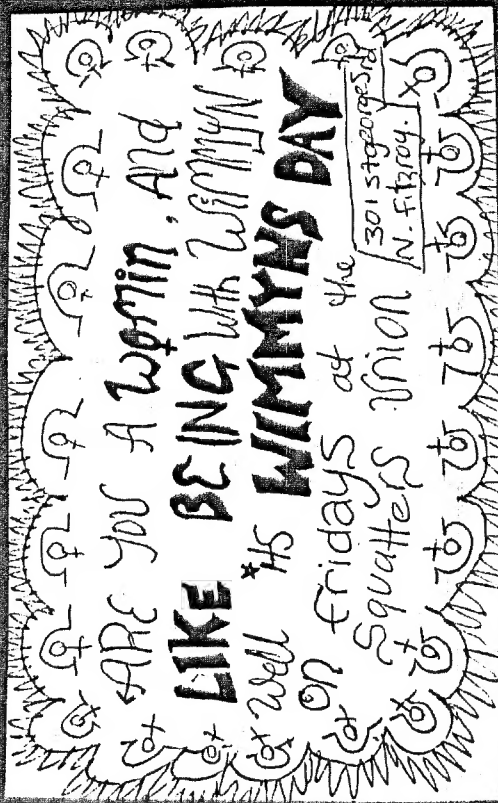 ARE YOU A Womin, And
LIKE BEING With WIMMIN
Well *ITS WIMMYNS DAY
on Fridays at the
Squatters Union
301 St georges rd
N. Fitzroy.